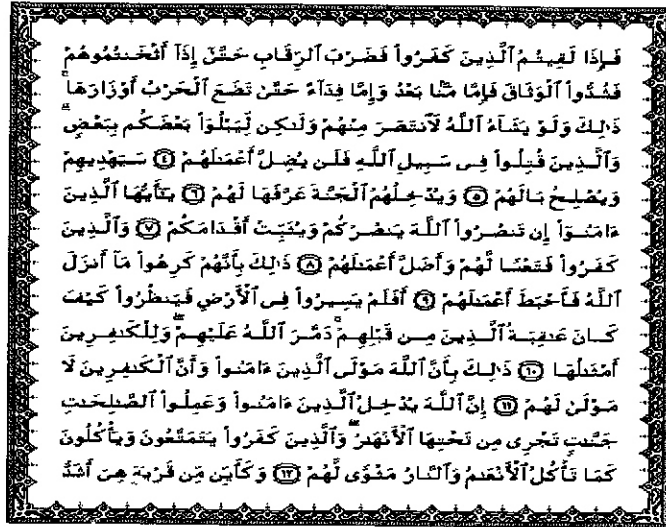 فَإِذَا لَقِيتُمُ ٱلَّذِينَ كَفَرُوا۟ فَضَرْبَ ٱلرِّقَابِ حَتَّىٰٓ إِذَآ أَثْخَنتُمُوهُمْ
فَشُدُّوا۟ ٱلْوَثَاقَ فَإِمَّا مَنًّۢا بَعْدُ وَإِمَّا فِدَآءً حَتَّىٰ تَضَعَ ٱلْحَرْبُ أَوْزَارَهَا ۚ
ذَٰلِكَ وَلَوْ يَشَآءُ ٱللَّهُ لَٱنتَصَرَ مِنْهُمْ وَلَٰكِن لِّيَبْلُوَا۟ بَعْضَكُم بِبَعْضٍ ۗ
وَٱلَّذِينَ قُتِلُوا۟ فِى سَبِيلِ ٱللَّهِ فَلَن يُضِلَّ أَعْمَٰلَهُمْ ﴿٤﴾ سَيَهْدِيهِمْ
وَيُصْلِحُ بَالَهُمْ ﴿٥﴾ وَيُدْخِلُهُمُ ٱلْجَنَّةَ عَرَّفَهَا لَهُمْ ﴿٦﴾ يَٰٓأَيُّهَا ٱلَّذِينَ
ءَامَنُوٓا۟ إِن تَنصُرُوا۟ ٱللَّهَ يَنصُرْكُمْ وَيُثَبِّتْ أَقْدَامَكُمْ ﴿٧﴾ وَٱلَّذِينَ
كَفَرُوا۟ فَتَعْسًا لَّهُمْ وَأَضَلَّ أَعْمَٰلَهُمْ ﴿٨﴾ ذَٰلِكَ بِأَنَّهُمْ كَرِهُوا۟ مَآ أَنزَلَ
ٱللَّهُ فَأَحْبَطَ أَعْمَٰلَهُمْ ﴿٩﴾ أَفَلَمْ يَسِيرُوا۟ فِى ٱلْأَرْضِ فَيَنظُرُوا۟ كَيْفَ
كَانَ عَٰقِبَةُ ٱلَّذِينَ مِن قَبْلِهِمْ ۚ دَمَّرَ ٱللَّهُ عَلَيْهِمْ ۖ وَلِلْكَٰفِرِينَ
أَمْثَٰلُهَا ﴿١٠﴾ ذَٰلِكَ بِأَنَّ ٱللَّهَ مَوْلَى ٱلَّذِينَ ءَامَنُوا۟ وَأَنَّ ٱلْكَٰفِرِينَ لَا
مَوْلَىٰ لَهُمْ ﴿١١﴾ إِنَّ ٱللَّهَ يُدْخِلُ ٱلَّذِينَ ءَامَنُوا۟ وَعَمِلُوا۟ ٱلصَّٰلِحَٰتِ
جَنَّٰتٍ تَجْرِى مِن تَحْتِهَا ٱلْأَنْهَٰرُ ۖ وَٱلَّذِينَ كَفَرُوا۟ يَتَمَتَّعُونَ وَيَأْكُلُونَ
كَمَا تَأْكُلُ ٱلْأَنْعَٰمُ وَٱلنَّارُ مَثْوًى لَّهُمْ ﴿١٢﴾ وَكَأَيِّن مِّن قَرْيَةٍ هِىَ أَشَدُّ